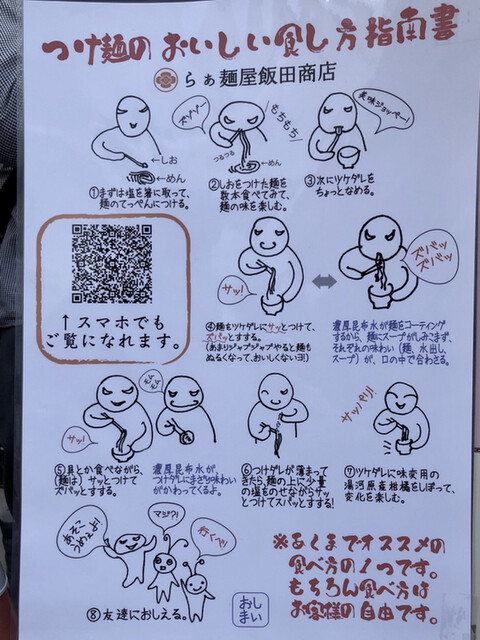 つけ麺のおいしい食し方指南書
らぁ麺屋飯田商店
ズゾゾー
もちもち
つるつる
美味ジョッペー!
←しお
←めん
←めん
①まずは塩を箸に取って、
麺のてっぺんにつける。
②しおをつけた麺を
数本食べてみて、
麺の味を楽しむ。
③次にツケダレを
ちょっとなめる。
↑スマホでも
ご覧になれます。
サッ!
ズバッ
ズバッ
④麺をツケダレにサッとつけて、
ズバッとすする。
(あまりジャブジャブやると麺も
ぬるくなって、おいしくないヨ!)
濃厚昆布水が麺をコーティング
するから、麺にスープがしみこまず、
それぞれの味わい(麺、水出し、
スープ)が、口の中で合わさる。
サッ!
⑤具とか食べながら、
(麺は)サッとつけて
ズバッとすする。
濃厚昆布水が、
つけダレにまざり味わい
がかわってくるよ。
⑥つけダレが薄まって
きたら、麺の上に少量
の塩をのせながらサッ
とつけてズバッとすする!
サッパリ!
⑦ツケダレに味変用の
湯河原産柑橘をしぼって、
変化を楽しむ。
あそこ
うめぇよ!
マジ?!
行くべ!
⑧友達におしえる。
おし
まい
※あくまでオススメの
食べ方の1つです。
もちろん食べ方は
お客様の自由です。